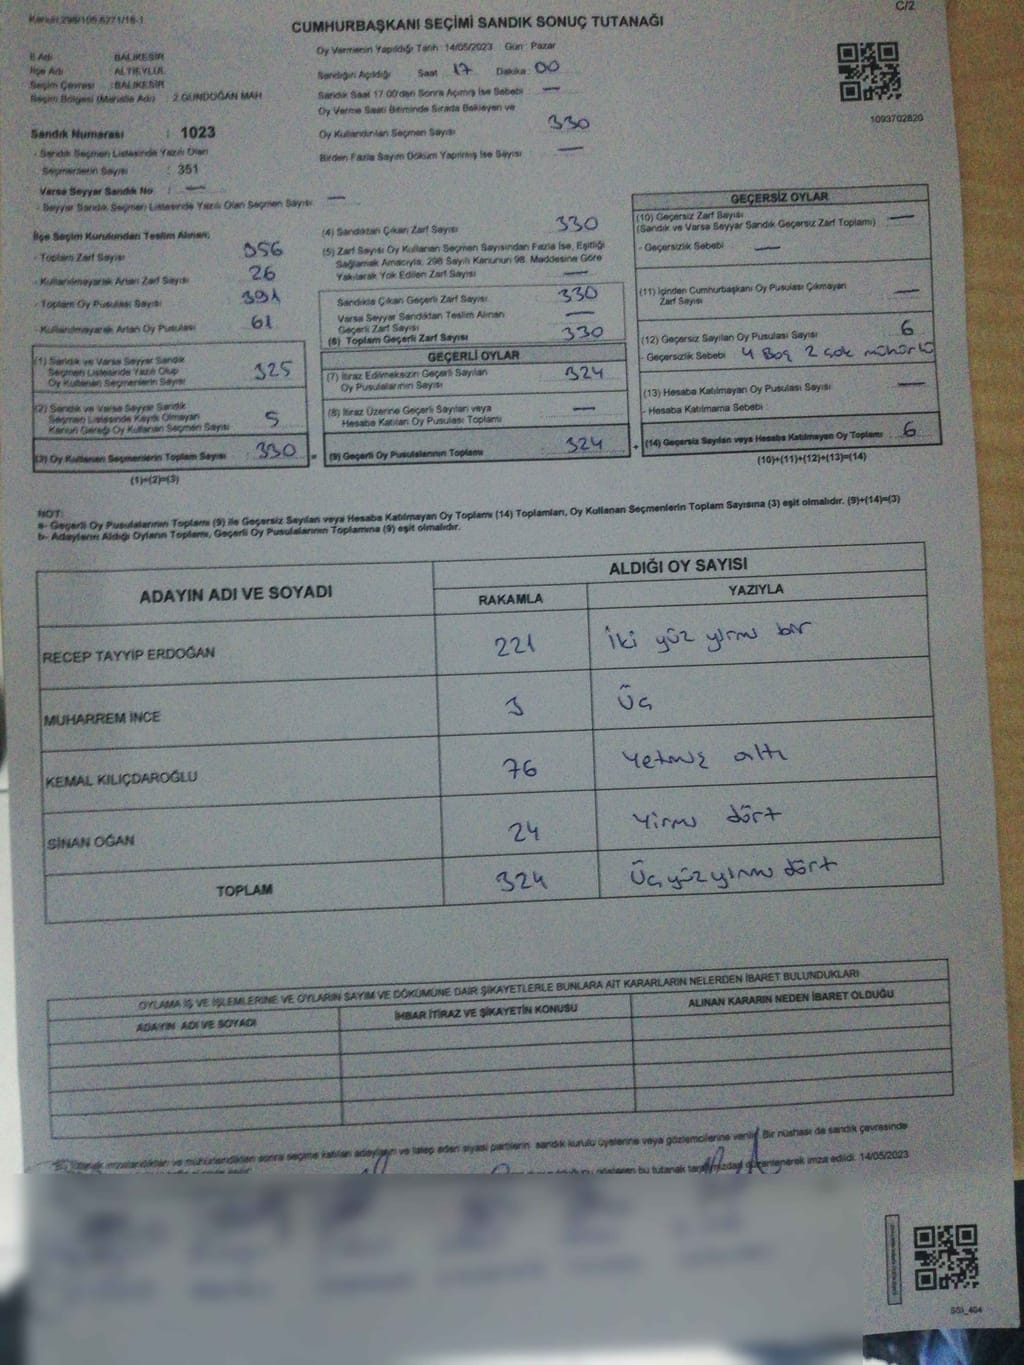 Kanun:298/106,6271/16-1
C/2
CUMHURBAŞKANI SEÇİMİ SANDIK SONUÇ TUTANAĞI
İl Adı : BALIKESİR
İlçe Adı : ALTIEYLÜL
Seçim Çevresi : BALIKESİR
Seçim Bölgesi (Mahalle Adı) : 2.GÜNDOĞAN MAH
Sandık Numarası : 1023
- Sandık Seçmen Listesinde Yazılı Olan
Seçmenlerin Sayısı : 351
Varsa Seyyar Sandık No : —
- Seyyar Sandık Seçmen Listesinde Yazılı Olan Seçmen Sayısı —
Oy Vermenin Yapıldığı Tarih :14/05/2023 Gün: Pazar
Sandığın Açıldığı Saat 17 Dakika: 00
Sandık Saat 17.00'den Sonra Açılmış İse Sebebi —
Oy Verme Saati Bitiminde Sırada Bekleyen ve
Oy Kullandırılan Seçmen Sayısı 330
Birden Fazla Sayım Döküm Yapılmış İse Sayısı —
1093702820
İlçe Seçim Kurulundan Teslim Alınan;
- Toplam Zarf Sayısı 356
- Kullanılmayarak Artan Zarf Sayısı 26
- Toplam Oy Pusulası Sayısı 391
- Kullanılmayarak Artan Oy Pusulası 61
(1) Sandık ve Varsa Seyyar Sandık
Seçmen Listesinde Yazılı Olup
Oy Kullanan Seçmenlerin Sayısı 325
(2) Sandık ve Varsa Seyyar Sandık
Seçmen Listesinde Kayıtlı Olmayan
Kanun Gereği Oy Kullanan Seçmen Sayısı 5
(3) Oy Kullanan Seçmenlerin Toplam Sayısı 330
(1)+(2)=(3)
(4) Sandıktan Çıkan Zarf Sayısı 330
(5) Zarf Sayısı Oy Kullanan Seçmen Sayısından Fazla İse, Eşitliği
Sağlamak Amacıyla, 298 Sayılı Kanunun 98. Maddesine Göre
Yakılarak Yok Edilen Zarf Sayısı —
Sandıkta Çıkan Geçerli Zarf Sayısı 330
Varsa Seyyar Sandıktan Teslim Alınan
Geçerli Zarf Sayısı —
(6) Toplam Geçerli Zarf Sayısı 330
GEÇERLİ OYLAR
(7) İtiraz Edilmeksizin Geçerli Sayılan
Oy Pusulalarının Sayısı 324
(8) İtiraz Üzerine Geçerli Sayılan veya
Hesaba Katılan Oy Pusulası Toplamı —
= (9) Geçerli Oy Pusulalarının Toplamı 324
GEÇERSİZ OYLAR
(10) Geçersiz Zarf Sayısı —
(Sandık ve Varsa Seyyar Sandık Geçersiz Zarf Toplamı)
- Geçersizlik Sebebi —
(11) İçinden Cumhurbaşkanı Oy Pusulası Çıkmayan
Zarf Sayısı —
(12) Geçersiz Sayılan Oy Pusulası Sayısı 6
- Geçersizlik Sebebi 4 Boş 2 çok mühürlü
(13) Hesaba Katılmayan Oy Pusulası Sayısı —
- Hesaba Katılmama Sebebi :
+ (14) Geçersiz Sayılan veya Hesaba Katılmayan Oy Toplamı 6
(10)+(11)+(12)+(13)=(14)
NOT:
a- Geçerli Oy Pusulalarının Toplamı (9) ile Geçersiz Sayılan veya Hesaba Katılmayan Oy Toplamı (14) Toplamları, Oy Kullanan Seçmenlerin Toplam Sayısına (3) eşit olmalıdır. (9)+(14)=(3)
b- Adayların Aldığı Oyların Toplamı, Geçerli Oy Pusulalarının Toplamına (9) eşit olmalıdır.
ADAYIN ADI VE SOYADI
ALDIĞI OY SAYISI
RAKAMLA YAZIYLA
RECEP TAYYİP ERDOĞAN 221 İki yüz yirmi bir
MUHARREM İNCE 3 Üç
KEMAL KILIÇDAROĞLU 76 Yetmiş altı
SİNAN OĞAN 24 Yirmi dört
TOPLAM 324 Üç yüz yirmi dört
OYLAMA İŞ VE İŞLEMLERİNE VE OYLARIN SAYIM VE DÖKÜMÜNE DAİR ŞİKAYETLERLE BUNLARA AİT KARARLARIN NELERDEN İBARET BULUNDUKLARI
ADAYIN ADI VE SOYADI İHBAR İTİRAZ VE ŞİKAYETİN KONUSU ALINAN KARARIN NEDEN İBARET OLDUĞU
tutanak imzalandıktan ve mühürlendikten sonra seçime katılan adayların ve talep eden siyasi partilerin sandık kurulu üyelerine veya gözlemcilerine verilir. Bir nüshası da sandık çevresinde
gösteren bu tutanak tarafımızdan düzenlenerek imza edildi. 14/05/2023
SSI_404